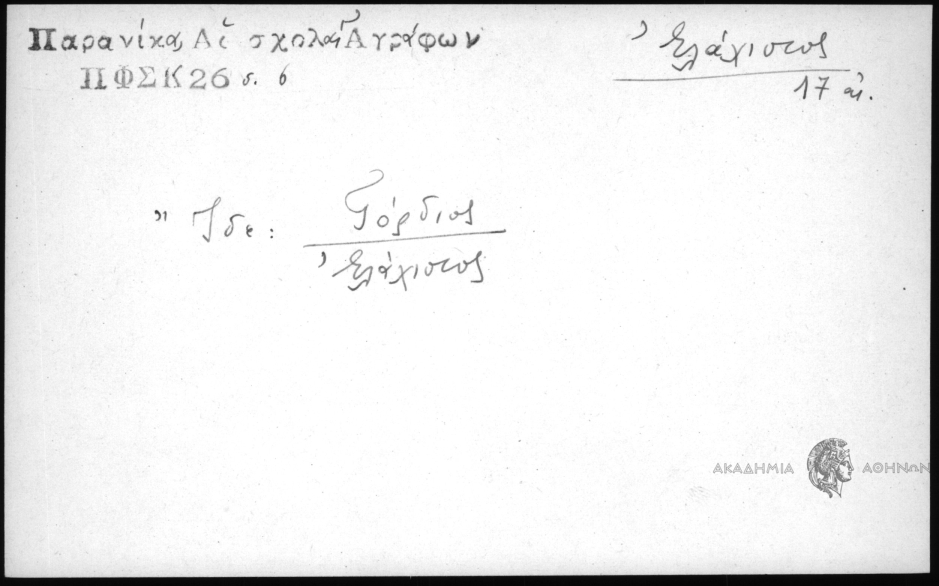 Παρανίκα, Αἱ σχολαὶ Ἀγράφων
ΠΦΣΚ 26 σ. 6
Ἐλάχιστος
17 αἰ.
Ἴδε: Γόρδιος
Ἐλάχιστος
ΑΚΑΔΗΜΙΑ ΑΘΗΝΩΝ